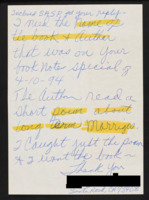 Enclose SASE for your reply.
I need the name of
the book & Author
that was on your
book notes special of
4-10-94
The Author read a
Short poem about
long term Marriges.
I Caught just the poem
& I want the book —
Thank You